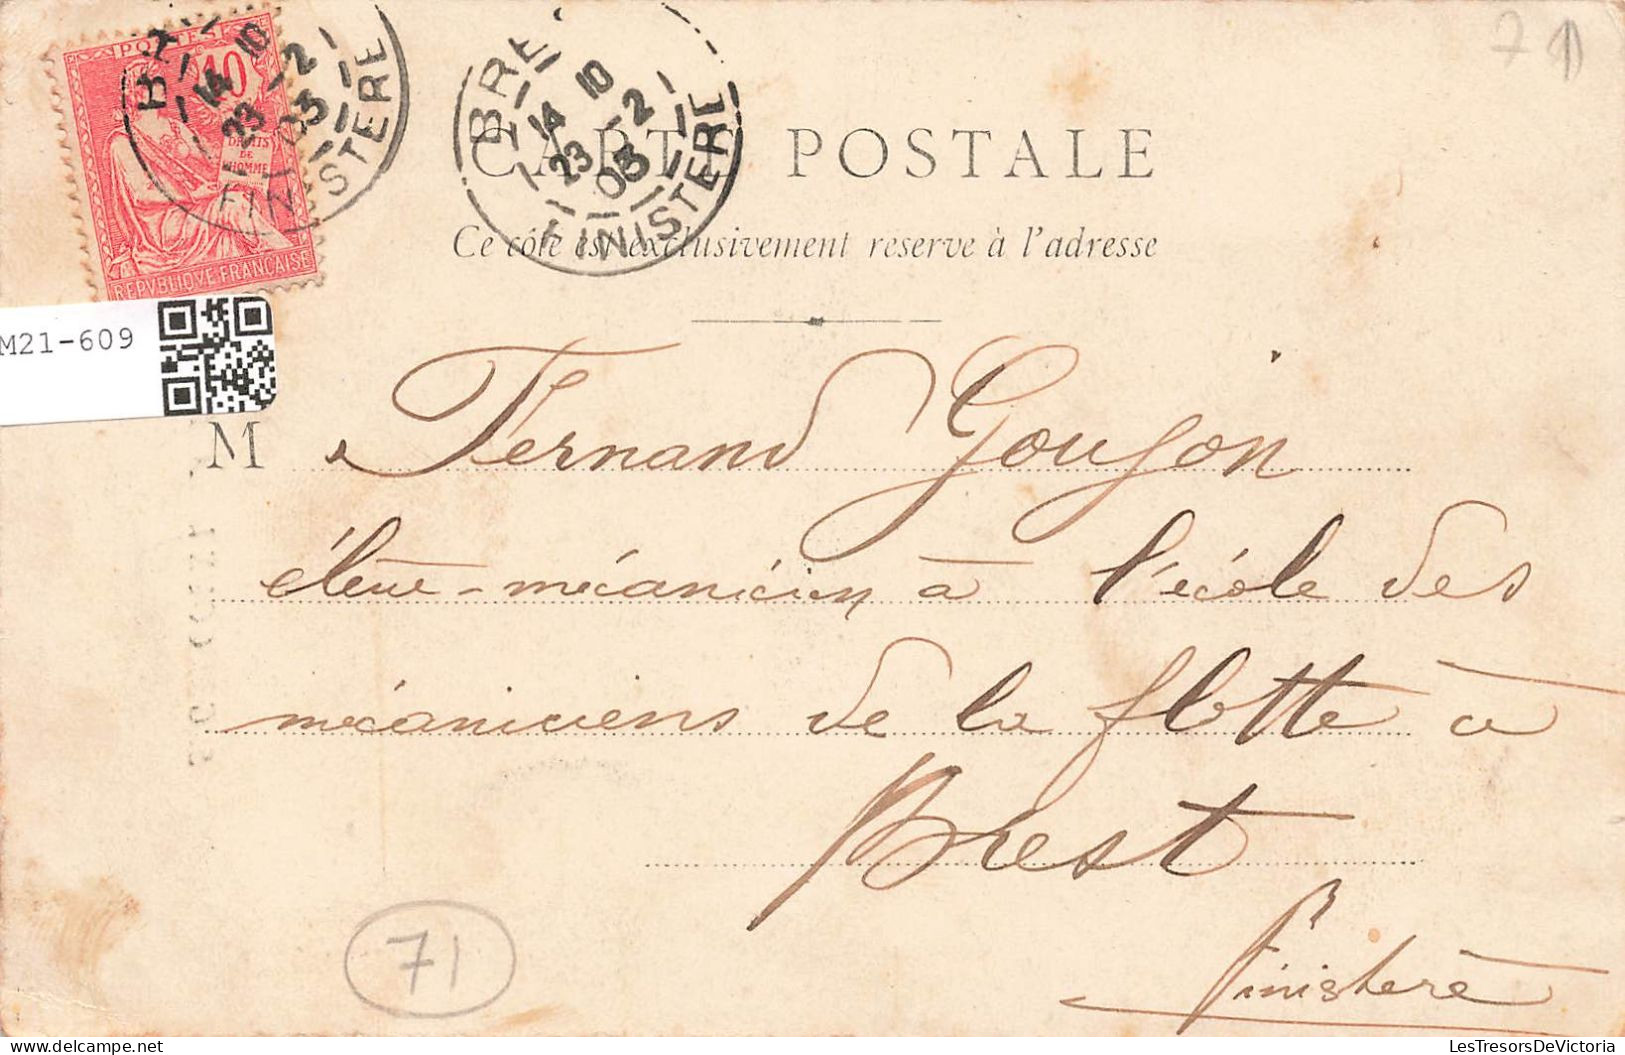 71
POSTES
10
DROITS
DE
L'HOMME
REPVBLIQVE FRANÇAISE
14 10
23 - 2
03
FINISTERE
BREST
14 10
23 - 2
03
FINISTERE
CARTE POSTALE
Ce côté est exclusivement reserve à l'adresse
M21-609
M Fernand Goujon
élève-mécanicien à l'école des
mécaniciens de la flotte à
Brest
Finistère
71
LesTresorsDeVictoria